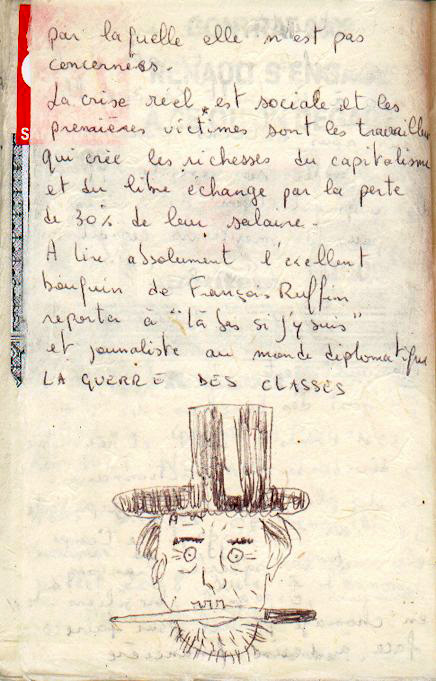 par laquelle elle n'est pas
concernées.
La crise réel, est sociale et les
premières victimes sont les travaill
qui crée les richesses du capitalisme
et du libre échange par la perte
de 30% de leur salaire.
A lire absolument l'excellent
bouquin de François Ruffin
reporter à "là bas si j'y suis"
et journaliste au monde diplomatique
LA GUERRE DES CLASSES